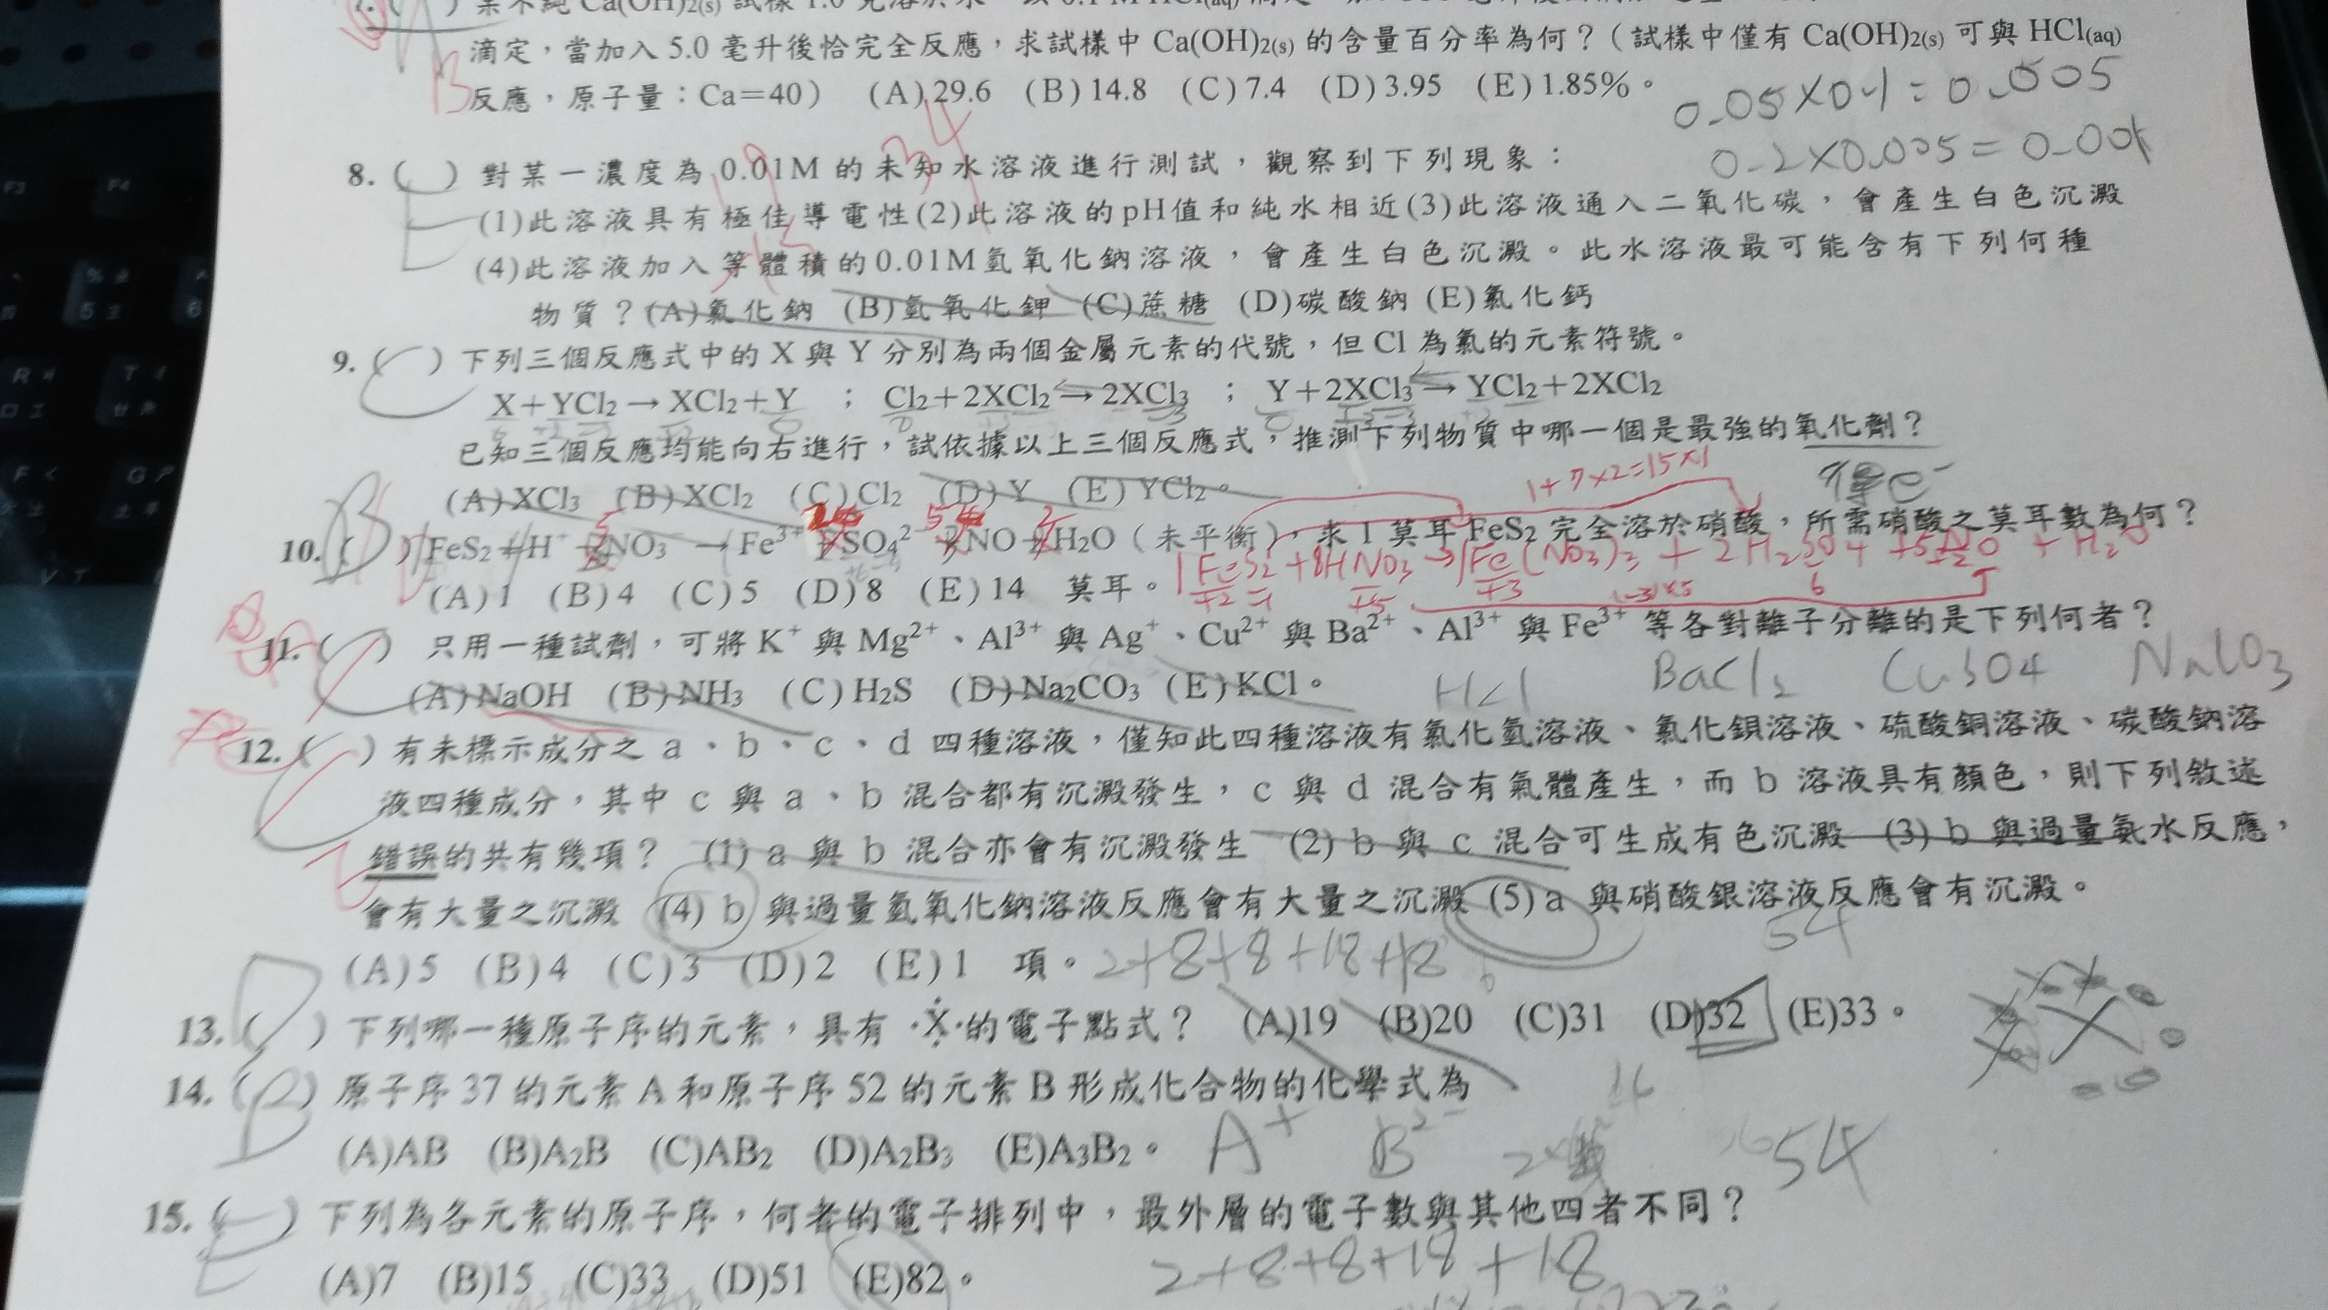 滴定，當加入 5.0 毫升後恰完全反應，求試樣中 Ca(OH)2(s) 的含量百分率為何？（試樣中僅有 Ca(OH)2(s) 可與 HCl(aq)
反應，原子量：Ca＝40） (A) 29.6 (B) 14.8 (C) 7.4 (D) 3.95 (E) 1.85%。
0.05×0.1=0.005
0.2×0.005=0.001
8. ( E ) 對某一濃度為 0.01M 的未知水溶液進行測試，觀察到下列現象：
(1)此溶液具有極佳導電性(2)此溶液的pH值和純水相近(3)此溶液通入二氧化碳，會產生白色沉澱
(4)此溶液加入等體積的0.01M氫氧化鈉溶液，會產生白色沉澱。此水溶液最可能含有下列何種
物質？(A)氯化鈉 (B)氫氧化鉀 (C)蔗糖 (D)碳酸鈉 (E)氯化鈣
9. ( C ) 下列三個反應式中的 X 與 Y 分別為兩個金屬元素的代號，但 Cl 為氯的元素符號。
X＋YCl2→XCl2＋Y ； Cl2＋2XCl2→2XCl3 ； Y＋2XCl3→YCl2＋2XCl2
已知三個反應均能向右進行，試依據以上三個反應式，推測下列物質中哪一個是最強的氧化劑？
得e⁻
(A) XCl3 (B) XCl2 (C) Cl2 (D) Y (E) YCl2。
1+7×2=15×1
10. ( B ) FeS2＋H⁺＋NO3⁻→Fe³⁺＋SO4²⁻＋NO＋H2O（未平衡），求 1 莫耳 FeS2 完全溶於硝酸，所需硝酸之莫耳數為何？
1FeS2+8HNO3→1Fe(NO3)3+2H2SO4+5NO+H2O
(A) 1 (B) 4 (C) 5 (D) 8 (E) 14 莫耳。
11. ( C ) 只用一種試劑，可將 K⁺ 與 Mg²⁺、Al³⁺ 與 Ag⁺、Cu²⁺ 與 Ba²⁺、Al³⁺ 與 Fe³⁺ 等各對離子分離的是下列何者？
(A) NaOH (B) NH3 (C) H2S (D) Na2CO3 (E) KCl。
HCl BaCl2 CuSO4 NaCO3
12. ( C ) 有未標示成分之 a、b、c、d 四種溶液，僅知此四種溶液有氯化氫溶液、氯化鋇溶液、硫酸銅溶液、碳酸鈉溶
液四種成分，其中 c 與 a、b 混合都有沉澱發生，c 與 d 混合有氣體產生，而 b 溶液具有顏色，則下列敘述
錯誤的共有幾項？ (1) a 與 b 混合亦會有沉澱發生 (2) b 與 c 混合可生成有色沉澱 (3) b 與過量氨水反應，
會有大量之沉澱 (4) b 與過量氫氧化鈉溶液反應會有大量之沉澱 (5) a 與硝酸銀溶液反應會有沉澱。
54
(A) 5 (B) 4 (C) 3 (D) 2 (E) 1 項。
2+8+8+18+18
13. ( D ) 下列哪一種原子序的元素，具有 ·Ẋ· 的電子點式？ (A)19 (B)20 (C)31 (D)32 (E)33。
14. ( B ) 原子序 37 的元素 A 和原子序 52 的元素 B 形成化合物的化學式為
(A)AB (B)A2B (C)AB2 (D)A2B3 (E)A3B2。
A⁺ B²⁻ 54
15. ( E ) 下列為各元素的原子序，何者的電子排列中，最外層的電子數與其他四者不同？
(A)7 (B)15 (C)33 (D)51 (E)82。
2+8+8+18+18